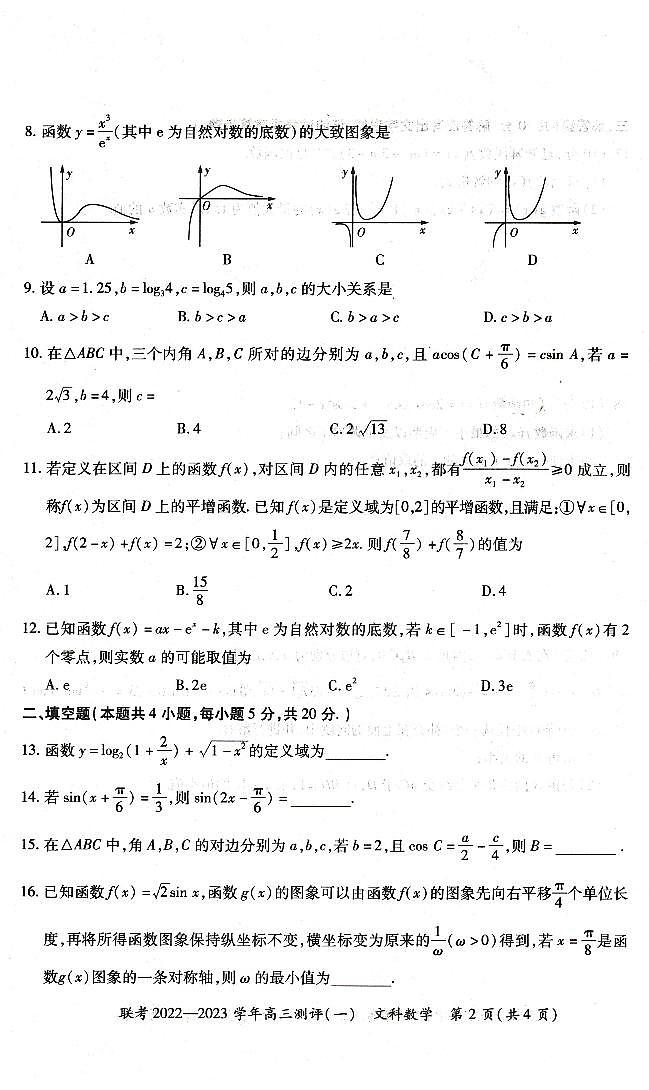 8. 函数 y = x³/eˣ (其中 e 为自然对数的底数)的大致图象是
y y y y
O x O x O x O x
A B C D
9. 设 a = 1.25, b = log₃4, c = log₄5, 则 a, b, c 的大小关系是
A. a > b > c B. b > c > a C. b > a > c D. c > b > a
10. 在△ABC 中,三个内角 A, B, C 所对的边分别为 a, b, c, 且 acos(C + π/6) = csin A, 若 a =
2√3, b = 4, 则 c =
A. 2 B. 4 C. 2√13 D. 8
11. 若定义在区间 D 上的函数 f(x), 对区间 D 内的任意 x₁, x₂, 都有 (f(x₁) - f(x₂))/(x₁ - x₂) ≥0 成立, 则
称 f(x) 为区间 D 上的平增函数. 已知 f(x) 是定义域为[0,2]的平增函数,且满足:①∀x∈[0,
2], f(2-x) + f(x) = 2;②∀x∈[0, 1/2], f(x) ≥ 2x. 则 f(7/8) + f(8/7) 的值为
A. 1 B. 15/8 C. 2 D. 4
12. 已知函数 f(x) = ax - eˣ - k, 其中 e 为自然对数的底数,若 k∈[-1, e²]时,函数 f(x) 有 2
个零点,则实数 a 的可能取值为
A. e B. 2e C. e² D. 3e
二、填空题(本题共 4 小题,每小题 5 分,共 20 分. )
13. 函数 y = log₂(1 + 2/x) + √(1 - x²) 的定义域为________.
14. 若 sin(x + π/6) = 1/3, 则 sin(2x - π/6) = ________.
15. 在△ABC 中,角 A, B, C 的对边分别为 a, b, c, 若 b = 2, 且 cos C = a/2 - c/4, 则 B = ________.
16. 已知函数 f(x) = √2sin x, 函数 g(x) 的图象可以由函数 f(x) 的图象先向右平移 π/4 个单位长
度,再将所得函数图象保持纵坐标不变,横坐标变为原来的 1/ω (ω > 0) 得到,若 x = π/8 是函
数 g(x) 图象的一条对称轴,则 ω 的最小值为________.
联考 2022—2023 学年高三测评(一) 文科数学 第 2 页(共 4 页)